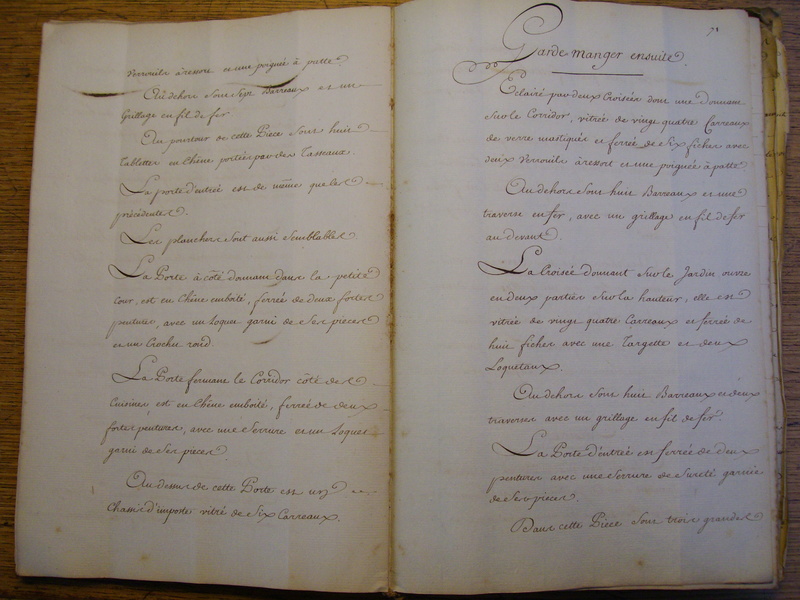 Verrouils à ressort et une poignée à patte.
Au dehors sont sept Barreaux et un
Grillage en fil de fer
Au pourtour de cette Piece sont huit
Tablettes en Chêne portées par des Tasseaux.
La porte d'entrée est de même que les
précédentes.
Les planchers sont aussi semblables.
La Porte à côté donnant dans la petite
cour, est en Chêne emboité, ferrée de deux fortes
pentures, avec un Loquet garni de ses pieces
et un Crochet rond.
La Porte fermant le Corridor côté des
Cuisines, est en Chêne emboité, ferrée de deux
fortes pentures, avec une Serrure et un Loquet
garni de ses pieces.
Au dessus de cette Porte est un
Chassis d'imposte vitré de Six Carreaux.
71
Garde manger ensuite.
Eclairé par deux Croisées dont une donnant
sur le Corridor, vitrée de vingt quatre Carreaux
de verre mastiqués et ferrée de Six fiches avec
deux Verrouils à ressort et une poignée à patte
Au dehors sont huit Barreaux et une
traverse en fer, avec un grillage en fil de fer
au devant.
La Croisée donnant sur le Jardin ouvre
en deux parties sur la hauteur, elle est
vitrée de vingt quatre Carreaux et ferrée de
huit fiches avec une Targette et deux
Loqueteaux.
Au dehors sont huit Barreaux et deux
traverses avec un grillage en fil de fer.
La Porte d'entrée est ferrée de deux
pentures avec une Serrure de Sureté garnie
de ses pieces.
Dans cette Piece sont trois grandes